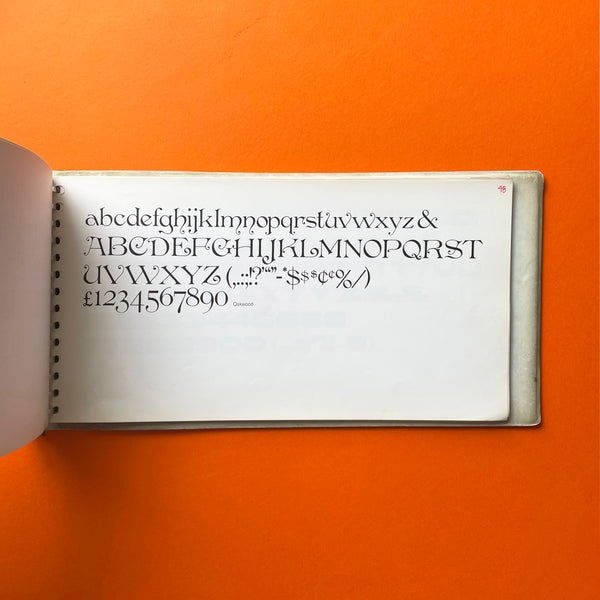 48
abcdefghijklmnopqrstuvwxyz&
ABCDEFGHIJKLMNOPQRST
UVWXYZ(,.:;!?'“”-*$$$¢¢%/)
£1234567890 Oakwood